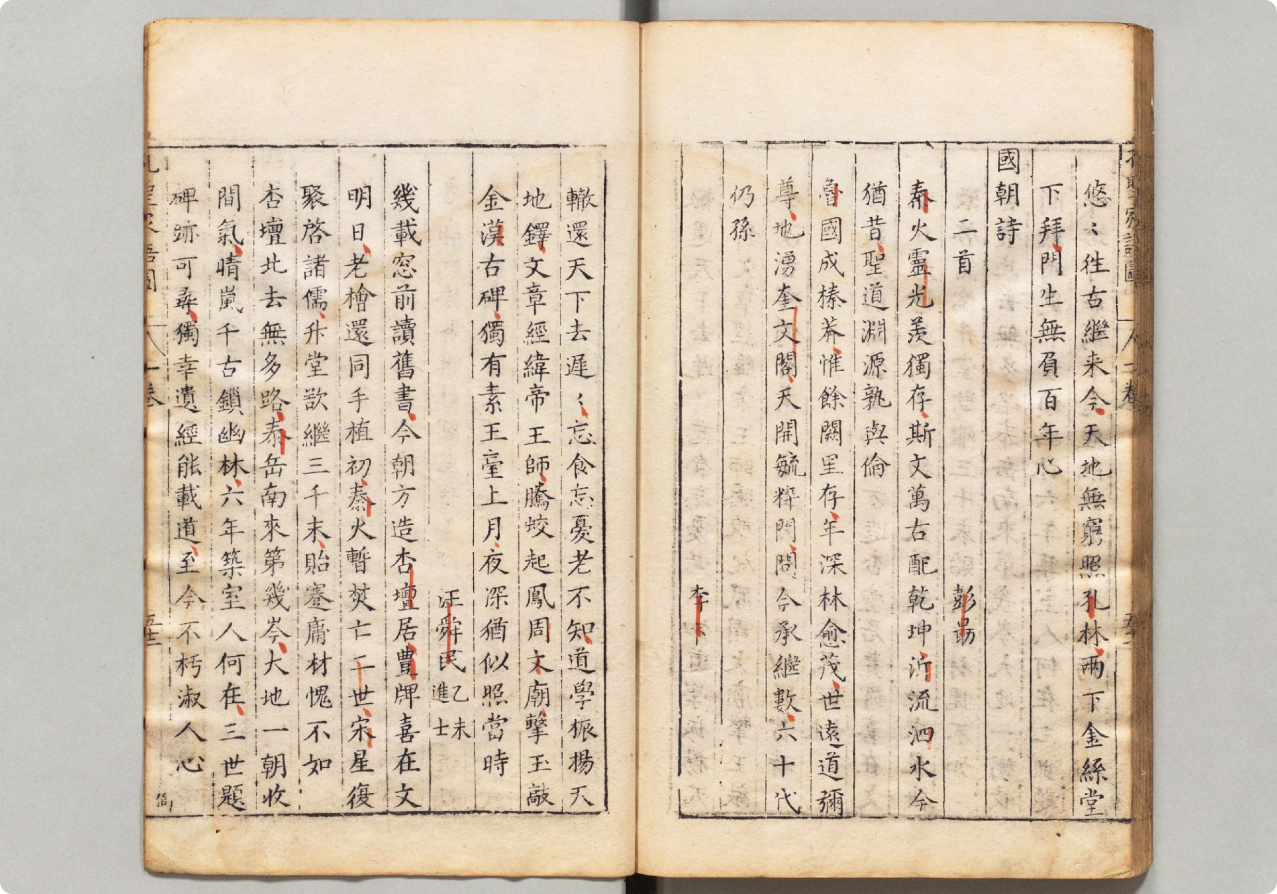 悠〻徃古繼来今天地無窮照孔林兩下金絲堂
下拜門生無負百年心
國朝詩
秦二首 彭勗
秦火靈光羡獨存斯文萬古配乾坤沂流泗水今
猶昔聖道淵源孰與倫
魯國成榛莽惟餘闕里存年深林愈茂世遠道彌
尊地湧奎文閣天開毓粹門問今承繼數六十代
仍孫
轍還天下去遲〻忘食忘憂老不知道學振揚天
地鐸文章經緯帝王師騰蛟起鳳周文廟擊玉敲
金漢古碑獨有素王臺上月夜深猶似照當時
汪舜民乙未進士
幾載窓前讀舊書今朝方造杏壇居豊牌喜在文
明日老檜還同手植初秦火暫焚亡二世宋星復
聚啓諸儒升堂欲繼三千末貽蹇庸材愧不如
杏壇北去無多路泰岳南來第幾岑大地一朝收
間氣晴嵐千古鎖幽林六年築室人何在三世題
碑跡可尋獨幸遺經能載道至今不朽淑人心